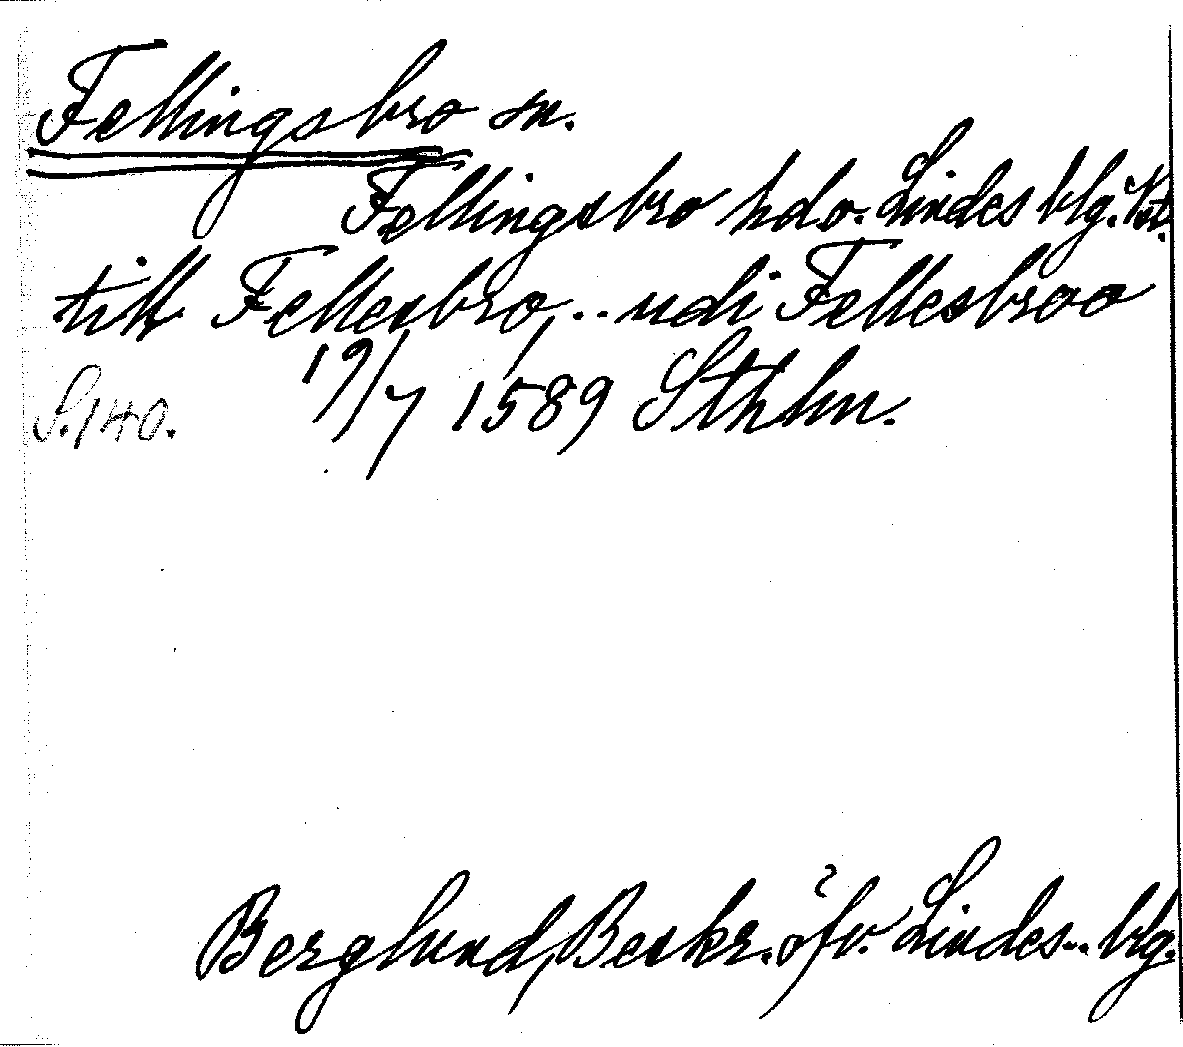 Fellingsbro sn.
Fellingsbro hdo. Lindes blg. Vst.
till Fellesbro,.. udi Fellesbroo
19/7 1589 Sthlm.
S.140.
Berglund, Beskr. öfv. Lindes.. blg.